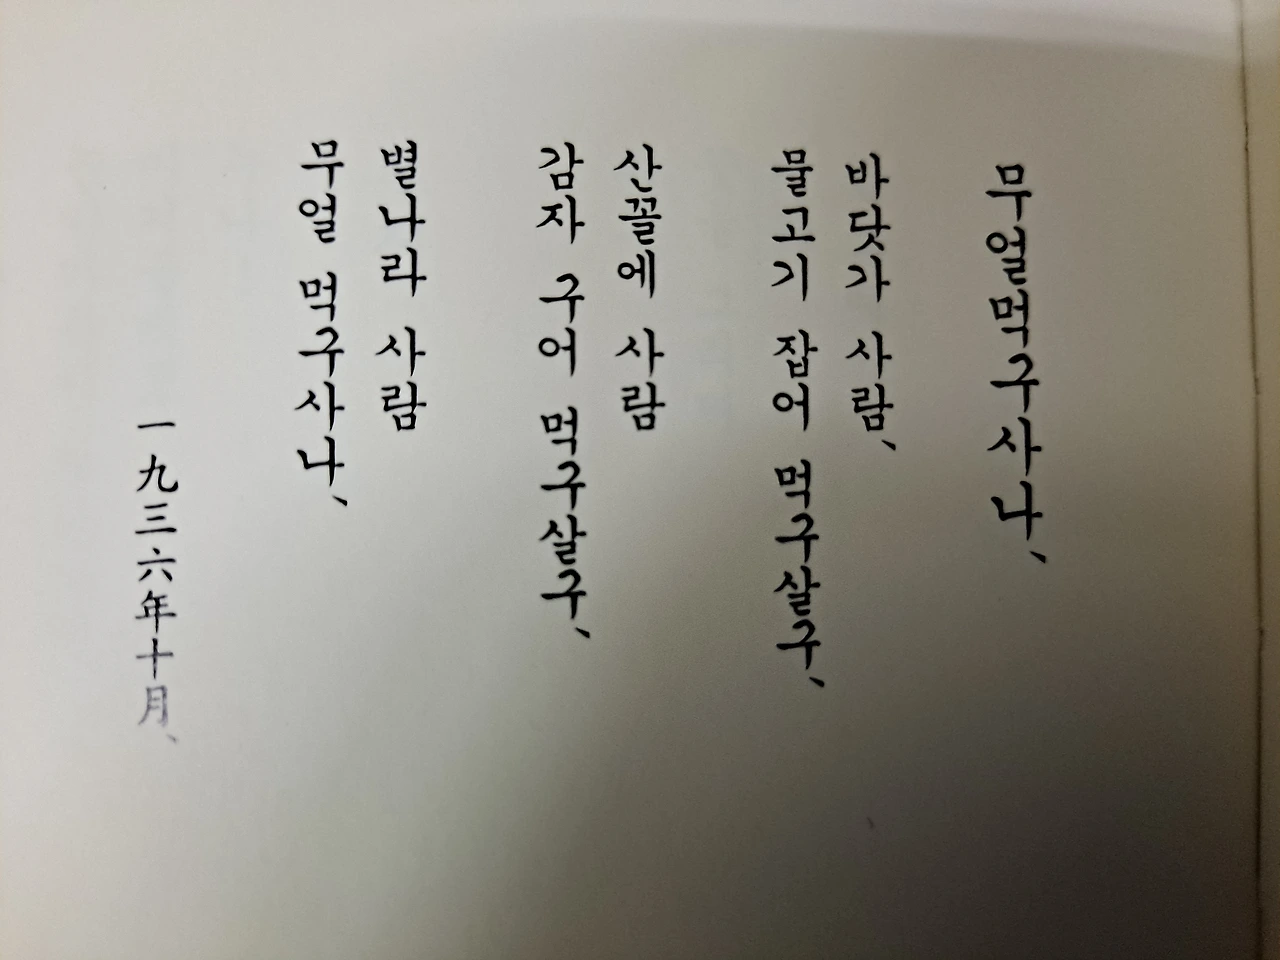 무얼먹구사나、
바닷가 사람、
물고기 잡어 먹구살구、
산꼴에 사람
감자 구어 먹구살구、
별나라 사람
무얼 먹구사나、
一九三六年十月、